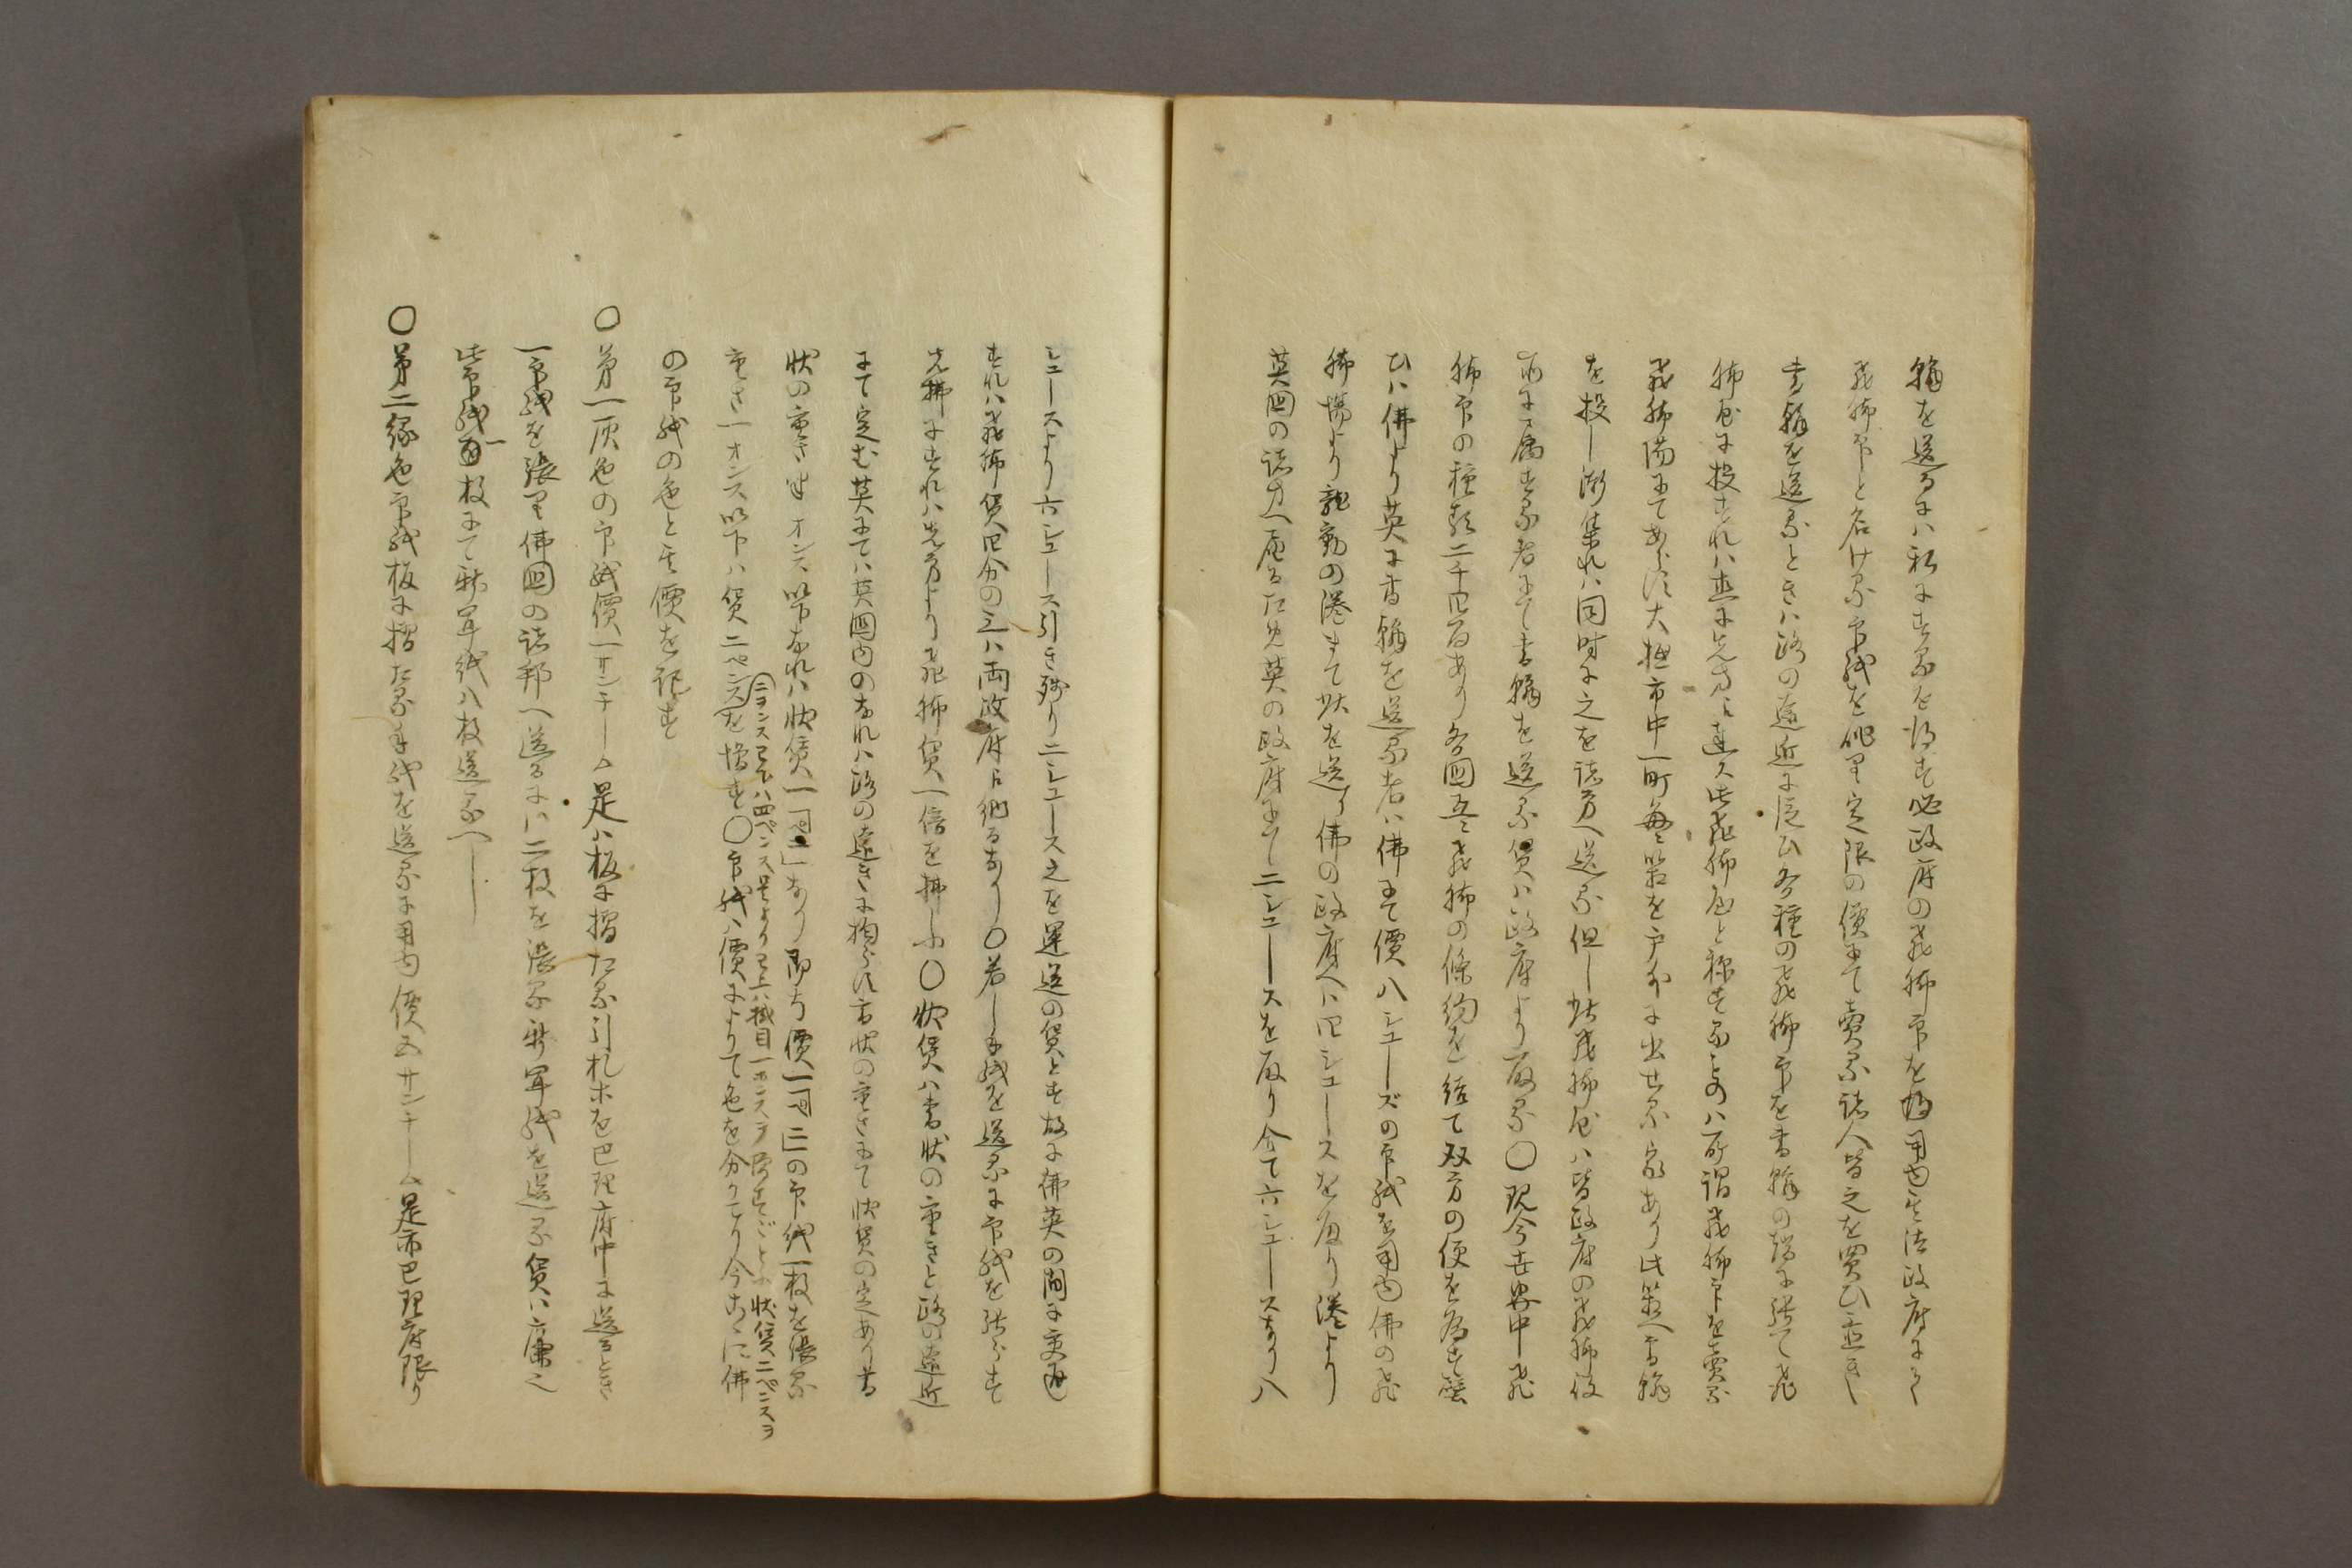 翰を送るには私にするを得す必政府の飛脚印を相用由其法政府にて
飛脚印と名け【る】印紙を作り定限の價にて賣る諸人皆之を買ひ置き
書翰を送るときハ路の遠近に従ひ各種の飛脚印を書翰の端に張て飛
脚屋に投すれハ直に先方に達ス此飛脚屋と称するものハ所謂飛脚印を賣る
飛脚場にてあらす大抵市中一町毎に箱を戸外に出せる家あり此箱へ書翰
を投し漸集れハ同時に之を諸方へ送る但し此飛脚屋ハ皆政府の飛脚役
所に属する者にて書翰を送る賃ハ政府より取る〇現今世界中飛
脚印の種類二千四百あり各國互に飛脚の條約を結て双方の便を為す譬
ひハ佛より英に書翰を送る者ハ佛にて價八シューズの印紙を用由佛の飛
脚場より龍動の港まて状を送り佛の政府へハ四シュースを取り港より
英國の諸方へ届るため英の政府にて二シュースを取り合て六シュースなり八
シュースより六シュース引き残り二シュース之を運送の賃とす故に佛英の間に交通
すれハ飛脚賃四分の三ハ両政府に納るなり〇若し手紙を送るに印紙を張らす
先拂にすれハ先方より飛脚賃一倍を拂ふ〇状賃ハ書状の重さと路の遠近
にて定む英にてハ英國内のなれハ路の遠きに拘らす書状の重さにて状賃の定あり書
状の重さ半オンス以下なれハ状賃一なり即ち價一の印紙一枚を張る
重さ一オンス以下ハ賃二ペンスを増す〇印紙ハ價によりて色を分てり今爰に佛
二ヲンス已下ハ四ペンス是より已上ハ掛目一オンスヲ増すごとに状賃二ペンスヲ
の印紙の色と其價を記す
〇第一灰色の印紙價一サンチーム是ハ板に摺たる引札ホを巴理府中に送るとき
一印紙を張り佛國の諸邦へ送るにハ二枚を張る新聞紙を送る賃ハ廉之
此印紙一百枚にて新聞紙八枚送るへし
〇第二緑色印紙板に摺たる手紙を送るに用由價五サンチーム是亦巴理府限り